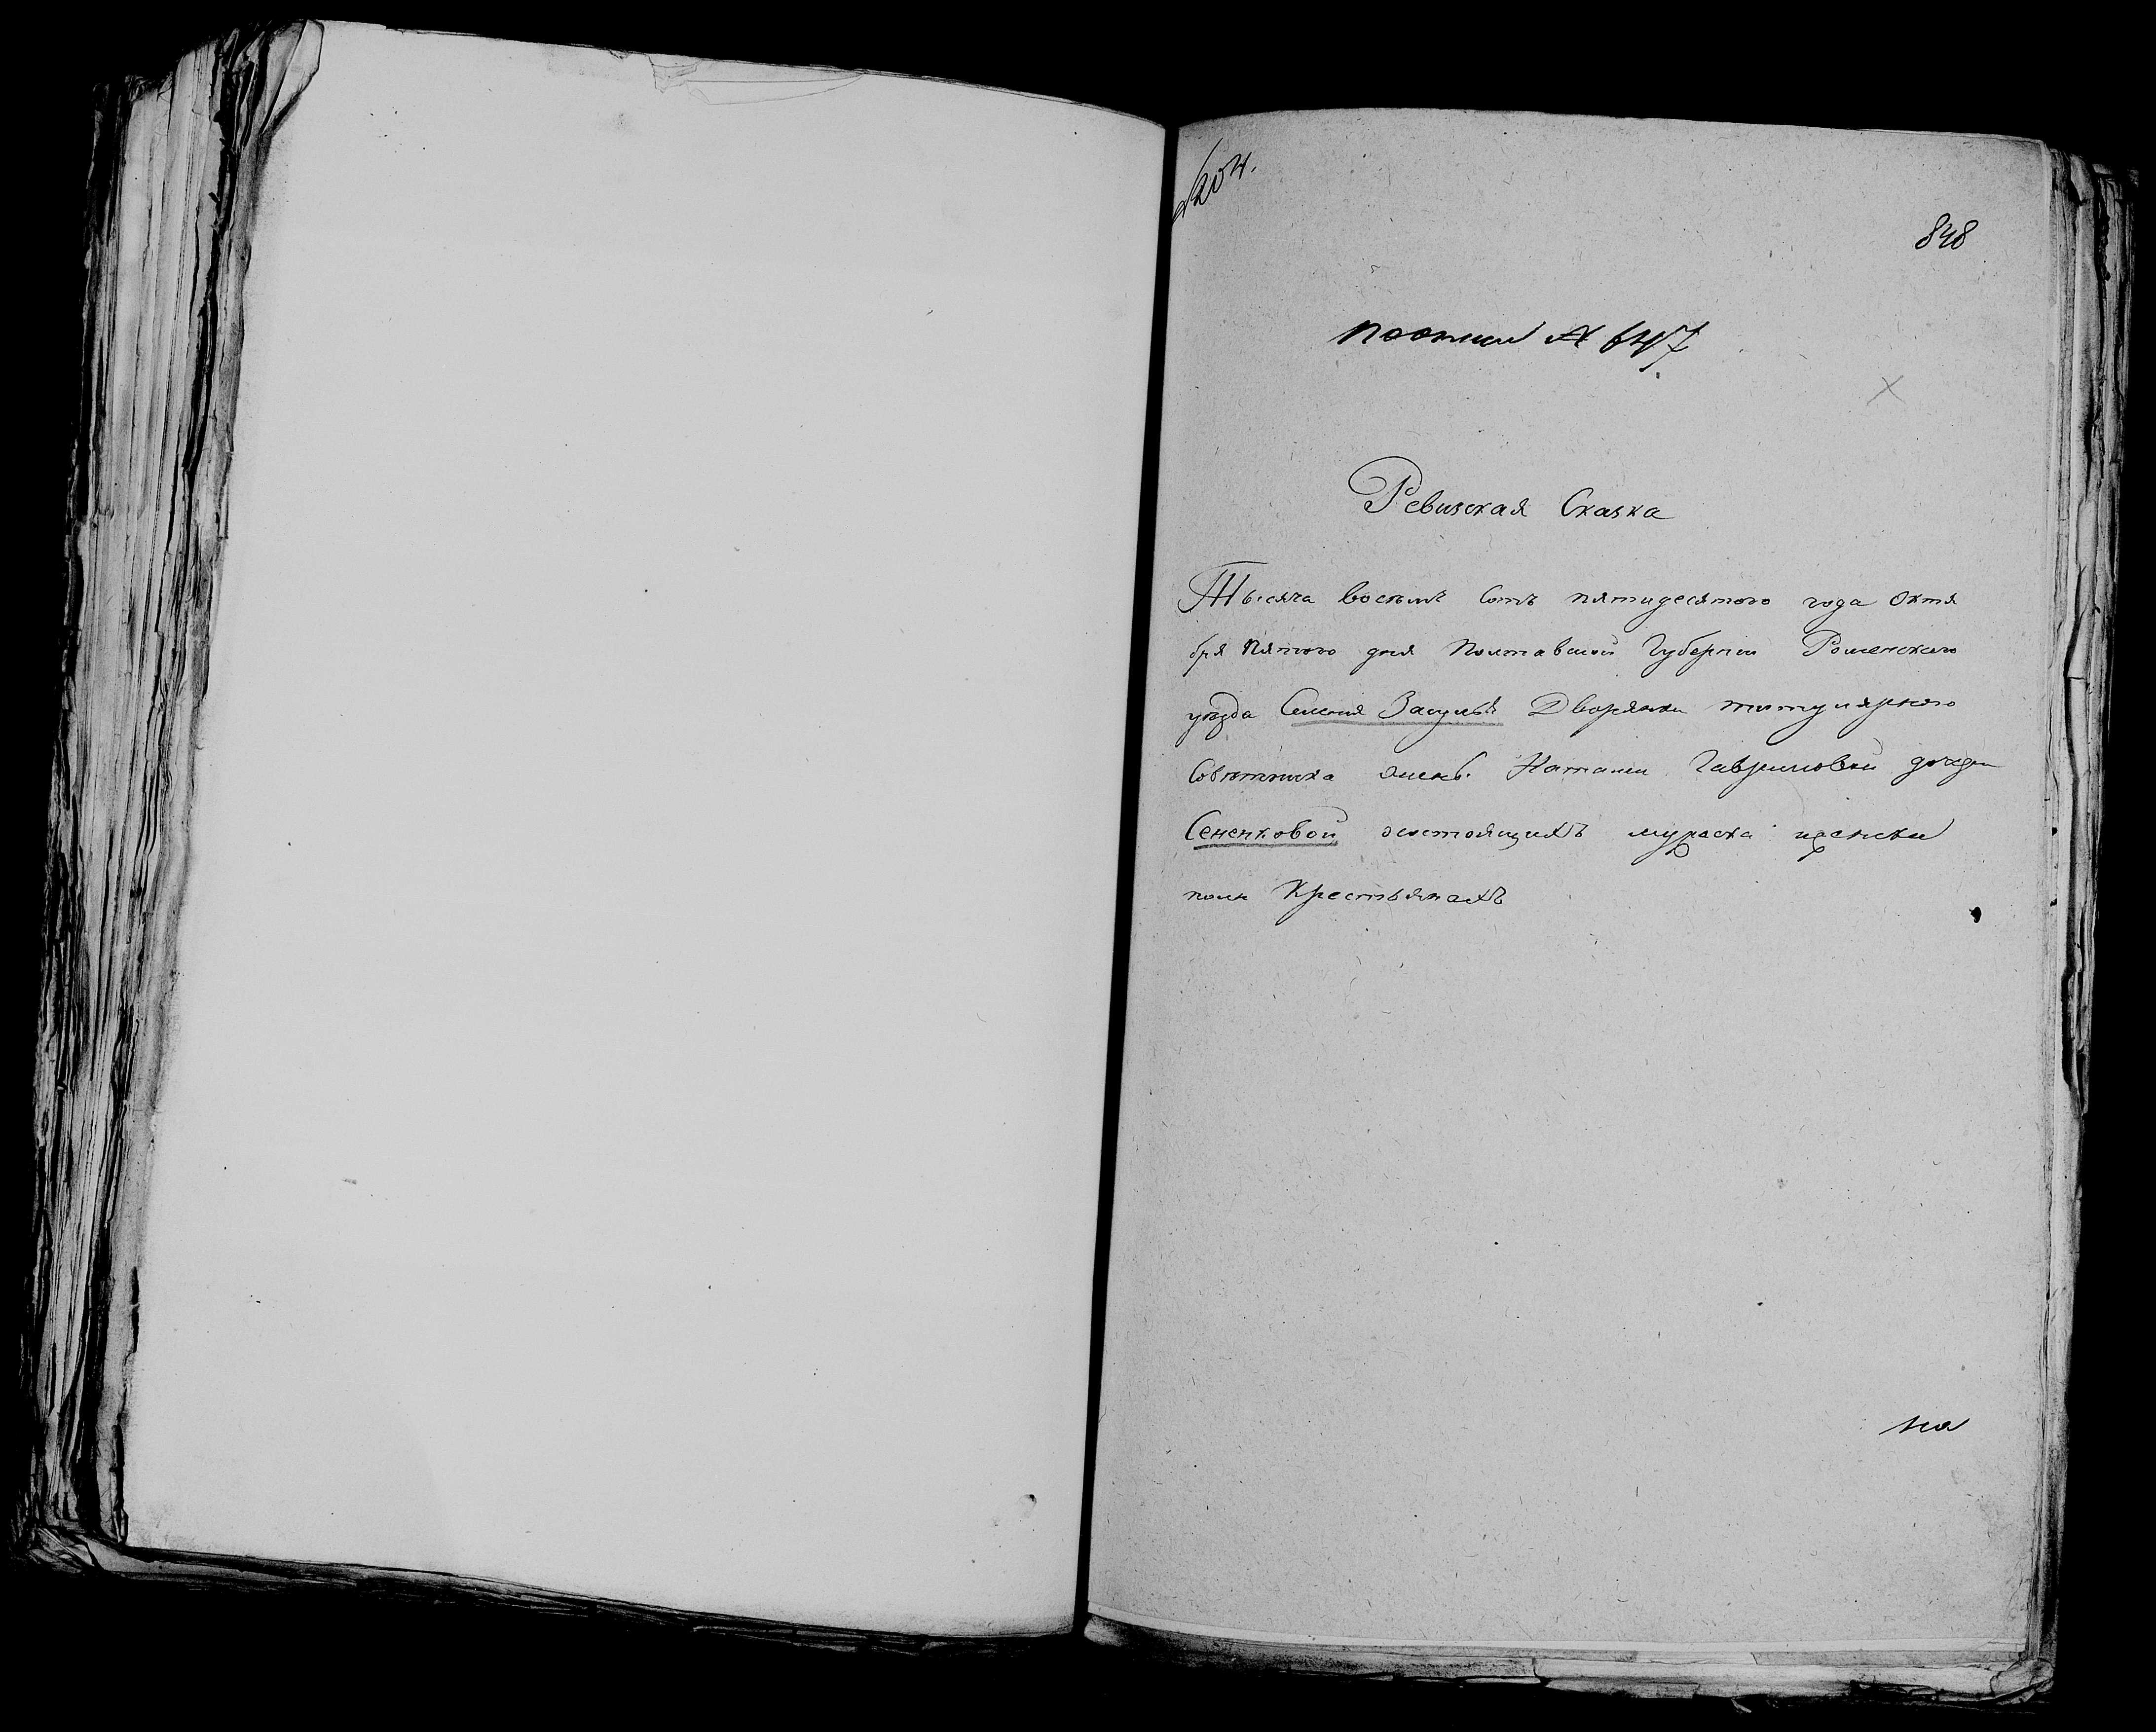 № 204.
848
по описи № 647
Ревизская Сказка
Тысяча восемъ сотъ пятидесятого года Октя
бря пятого дня Полтавской Губернии Роменского
уезда Селения Засулья Дворянки титулярного
Советника жены Наталии Гавриловой дочери
Сененковой о состоящихъ мужеска и женска
пола Крестьянахъ
на